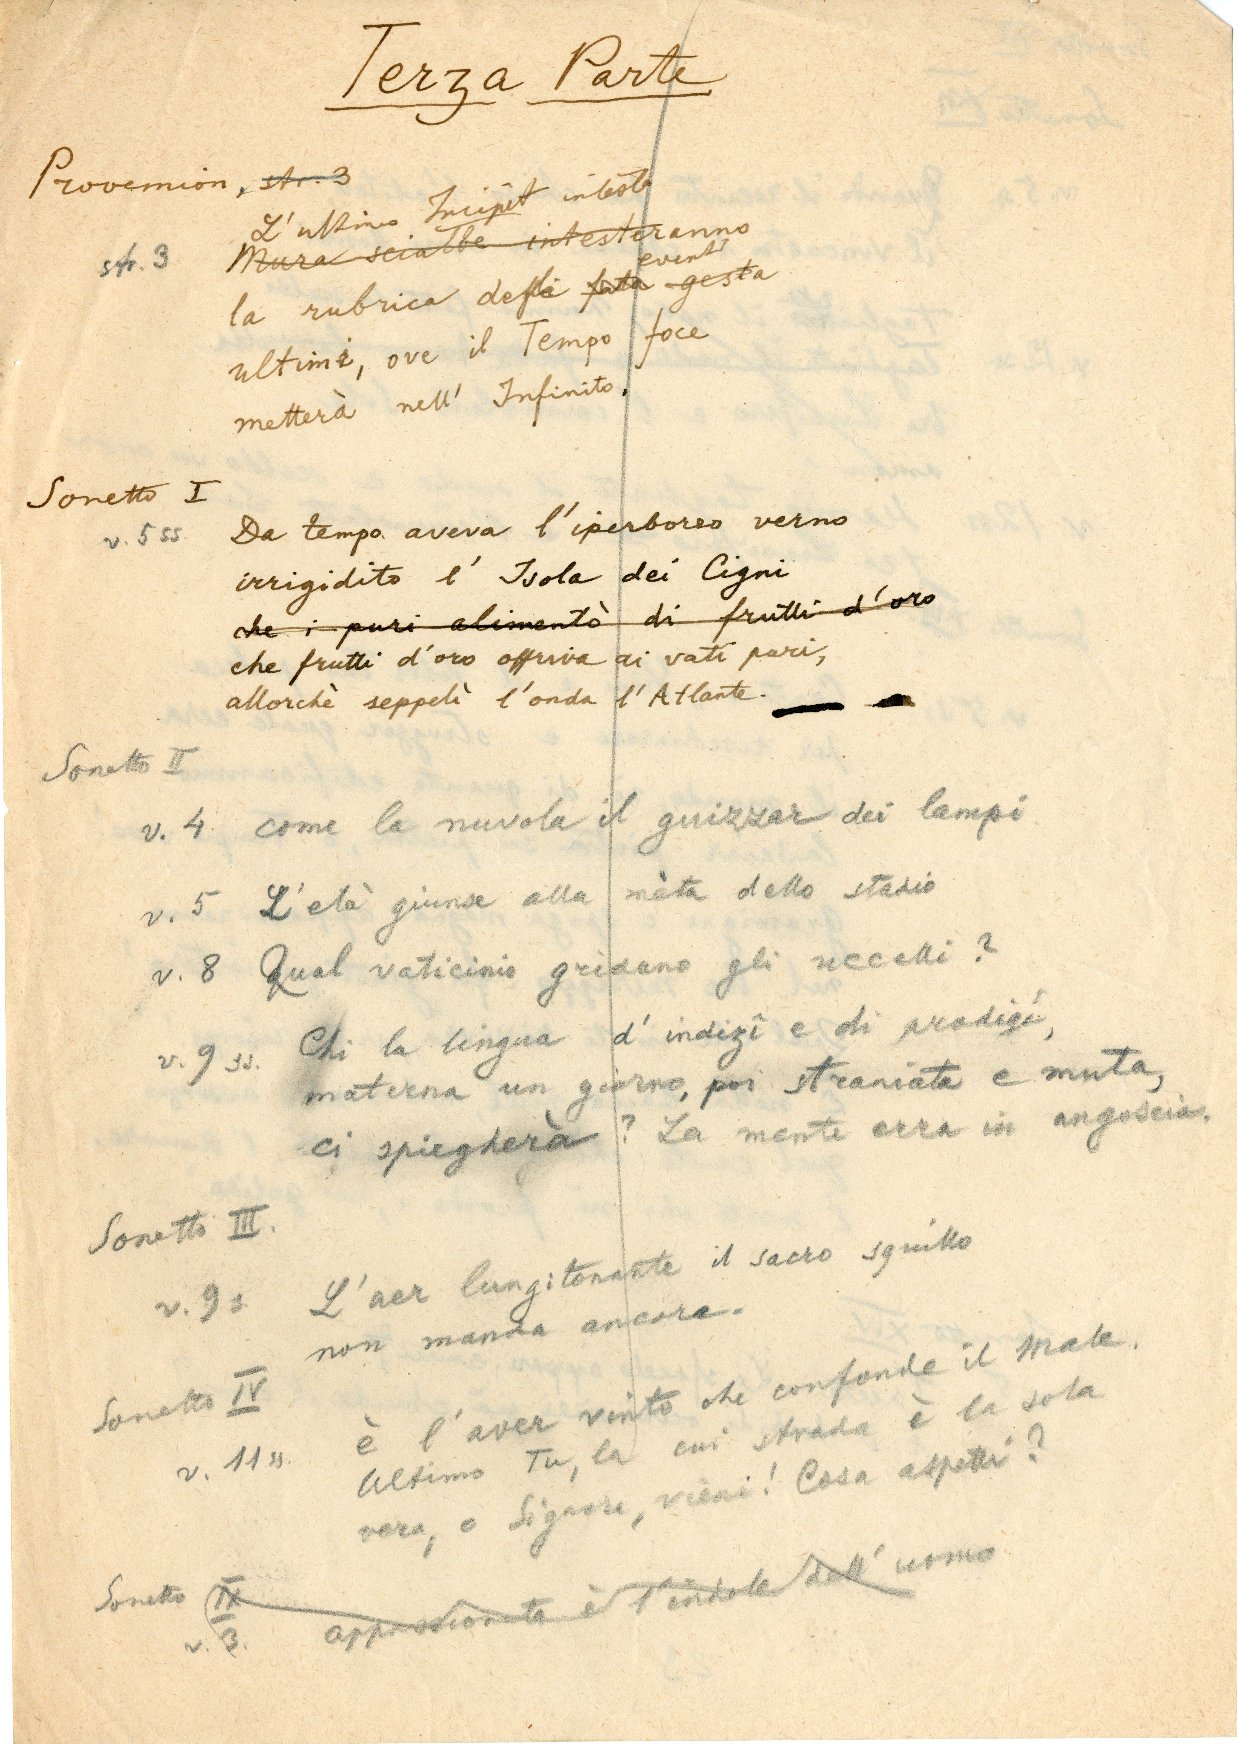 Terza Parte
Provemion, str. 3
L'ultimo Incipit intesta
str. 3 Mura scialbe intesteranno
eventi
la rubrica degli fata gesta
ultimi, ove il Tempo foce
metterà nell' Infinito.
Sonetto I
v. 5 ss. Da tempo aveva l'iperboreo verno
irrigidito l' Isola dei Cigni
che i puri alimentò di frutti d'oro
che frutti d'oro offriva ai vati puri,
allorchè seppelì l'onda l'Atlante.
Sonetto II
v. 4 come la nuvola il guizzar dei lampi
v. 5 L'età giunse alla mèta dello stadio
v. 8 Qual vaticinio gridano gli uccelli?
v. 9 ss. Chi la lingua d'indizî e di prodigi,
materna un giorno, poi straniata e muta,
ci spiegherà? La mente erra in angoscia.
Sonetto III.
v. 9 s. L'aer lungitonante il sacro squillo
non manda ancora.
Sonetto IV
v. 11 ss. è l'aver vinto che confonde il Male.
Ultimo Tu, la cui strada è la sola
vera, o Signore, vieni! Cosa aspetti?
Sonetto IX
v. 3. appassionata è l'indole dell' uomo